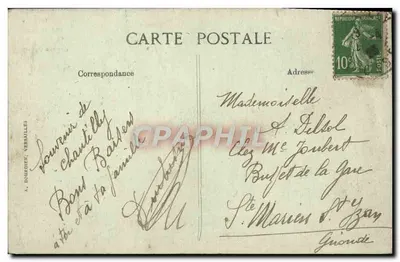 CARTE POSTALE
Correspondance
Adresse
Souvenir de
Chantilly
Bons Baisers
a toi et à ta famille
Mademoiselle
A Delsol
Chez Mr Joubert
Buffet de la Gare
Ste Mariens St Yzan
Gironde
10c
CPAPHIL.com